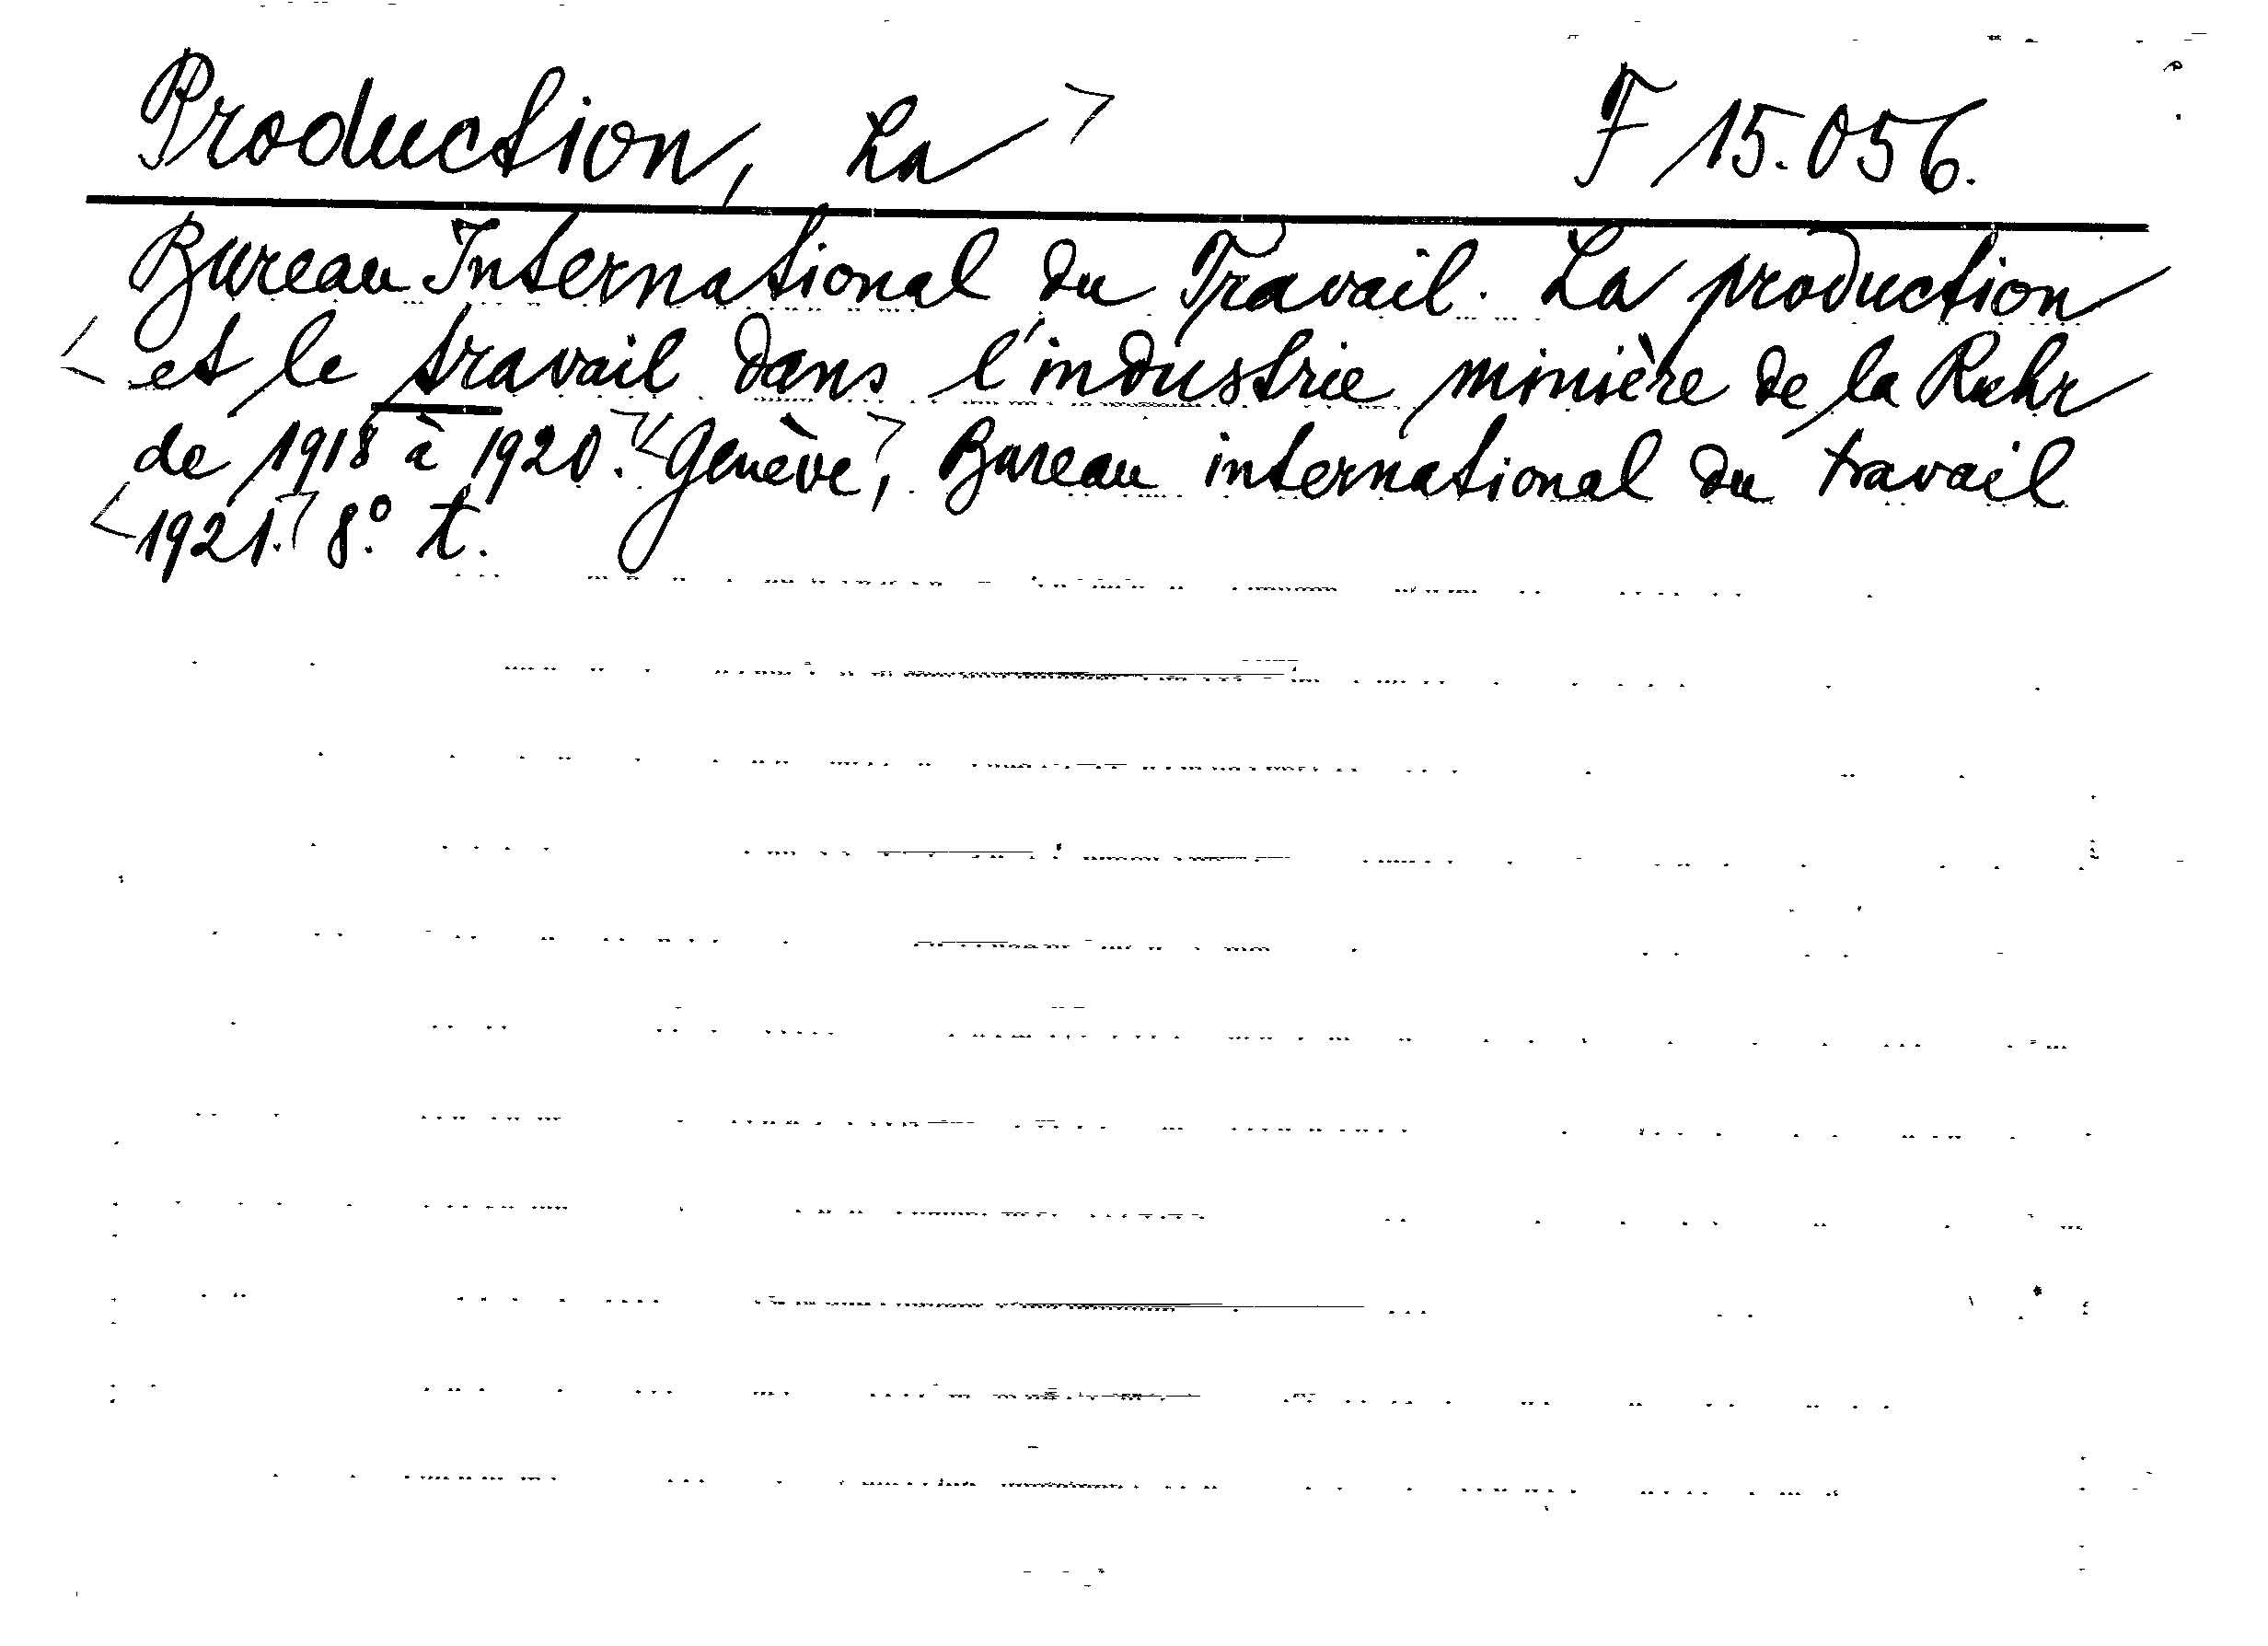 Production, La F 15.056.
Bureau International du Travail. La production
et le travail dans l'industrie minière de la Ruhr
de 1918 à 1920. Genève, Bureau international du travail
1921. 8º. t.